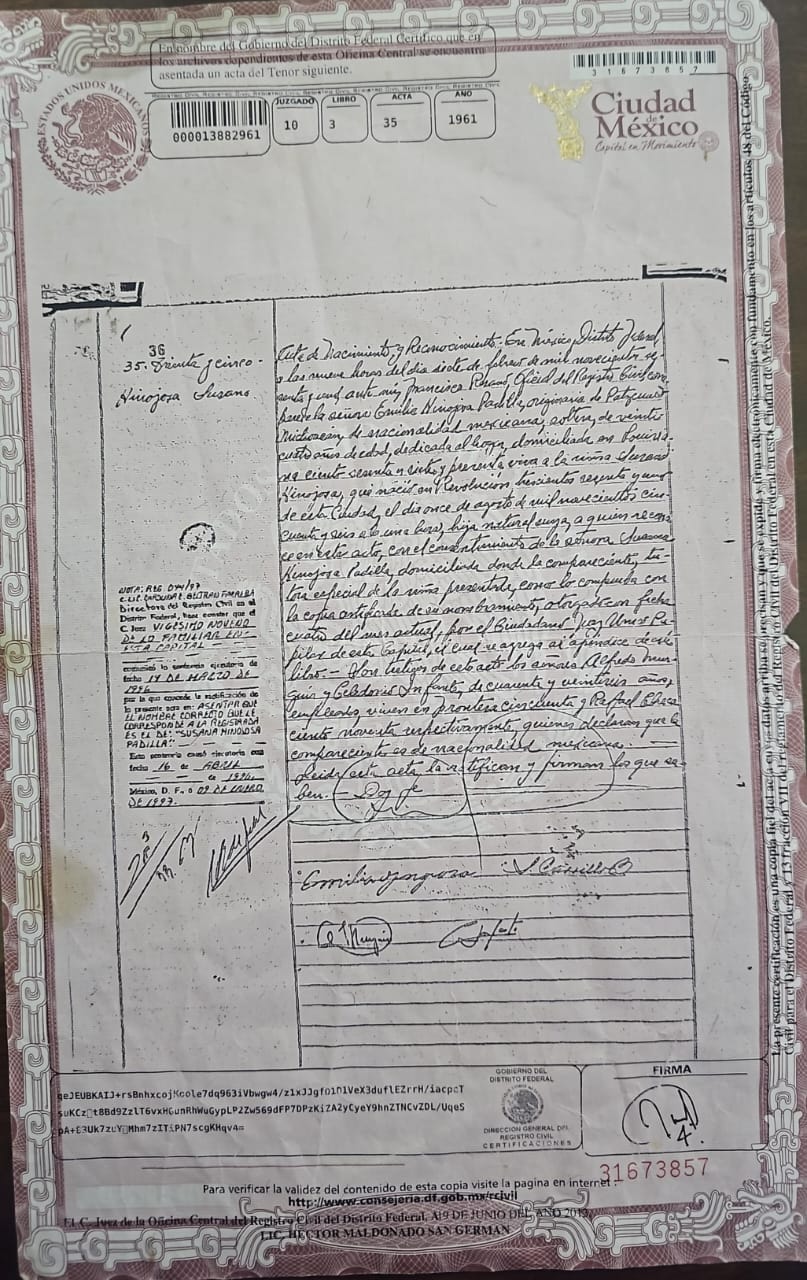 En nombre del Gobierno del Distrito Federal Certifico que en
los archivos dependientes de esta Oficina Central se encuentra
asentada un acta del Tenor siguiente.
31673857
ESTADOS UNIDOS MEXICANOS
000013882961
JUZGADO
10
LIBRO
3
ACTA
35
AÑO
1961
Ciudad
de
México
Capital en Movimiento
36
35. Treinta y cinco.-
Hinojosa Susana
Acta de Nacimiento y Reconocimiento.- En México, Distrito Federal,
a las nueve horas del día siete de febrero de mil novecientos se-
senta y uno, ante mí, Francisco Oficial del Registro Civil, com-
parece la señora Emilia Hinojosa Padilla, originaria de Pátzcuaro
Michoacán de nacionalidad mexicana, soltera, de veinti
cuatro años de edad, dedicada al hogar, domiciliada en
ciento sesenta y siete, y presenta viva a la niña Susana
Hinojosa, que nació en Revolución trescientos sesenta y uno
de esta Ciudad, el día once de agosto de mil novecientos cin-
cuenta y seis a la una hora, hija natural suya, a quien recono-
ce en este acto, con el consentimiento de la señora Susana
Hinojosa Padilla, domiciliada donde la compareciente, tu-
tora especial de la niña presentada, como lo comprueba con
la copia certificada de su nombramiento, otorgado con fecha
cuatro del mes actual, por el Ciudadano Juez
de esta Capital, el cual se agrega al apéndice de este
libro.- Son testigos de este acto los señores Alfredo Mun-
guía y Celedonio Infante, de cuarenta y veintiséis años,
empleados, viven en Frontera cincuenta y Rafael
ciento noventa respectivamente, quienes declaran que la
compareciente es de nacionalidad mexicana.
Leída esta acta la ratifican y firman los que sa-
ben.- Doy fe
NOTA: REG. 044/97
Directora del Registro Civil en el
Distrito Federal, hace constar que el
C. Juez VIGESIMO NOVENO
DE LO FAMILIAR EN
ESTA CAPITAL
comunicó la sentencia ejecutoria de
fecha 14 DE MARZO DE
1996
por la que concede la rectificación de
la presente acta en: ASENTAR QUE
EL NOMBRE CORRECTO QUE LE
CORRESPONDE A LA REGISTRADA
ES EL DE: "SUSANA HINOJOSA
PADILLA".
Esta sentencia causó ejecutoria con
fecha 16 de ABRIL
de 1996
México, D. F., a 09 DE ENERO
DE 1997.
Emilia Hinojosa
FIRMA
GOBIERNO DEL
DISTRITO FEDERAL
DIRECCIÓN GENERAL DEL
REGISTRO CIVIL
CERTIFICACIONES
31673857
Para verificar la validez del contenido de esta copia visite la pagina en internet:
http://www.consejeria.df.gob.mx/rcivil
El C. Juez de la Oficina Central del Registro Civil del Distrito Federal, A 9 DE JUNIO DEL AÑO
LIC. HECTOR MALDONADO SAN GERMAN
La presente certificación es una copia fiel del acta en sus datos arriba se precisan y que se expide y firma electrónicamente con fundamento en los artículos 48 del Código
Civil para el Distrito Federal y 13 fracción VII del Reglamento del Registro Civil del Distrito Federal en esta Ciudad de México.